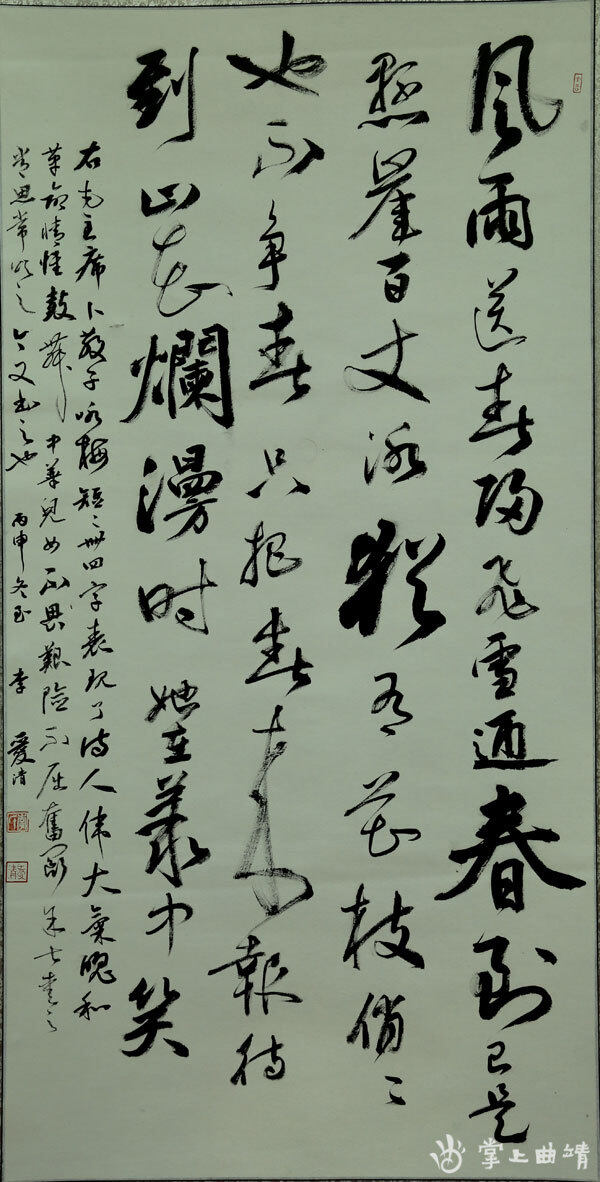 風雨送春歸飛雪迎春到已是
懸崖百丈冰猶有花枝俏〻
也不争春只把春来報待
到山花爛漫时她在叢中笑
右毛主席卜算子咏梅短〻卌四字表现了诗人偉大氣魄和
革命情懷鼓舞中華兒女不畏艱險不屈奮鬥
常思常咏之今又书之也 丙申冬至 李愛清
掌上曲靖